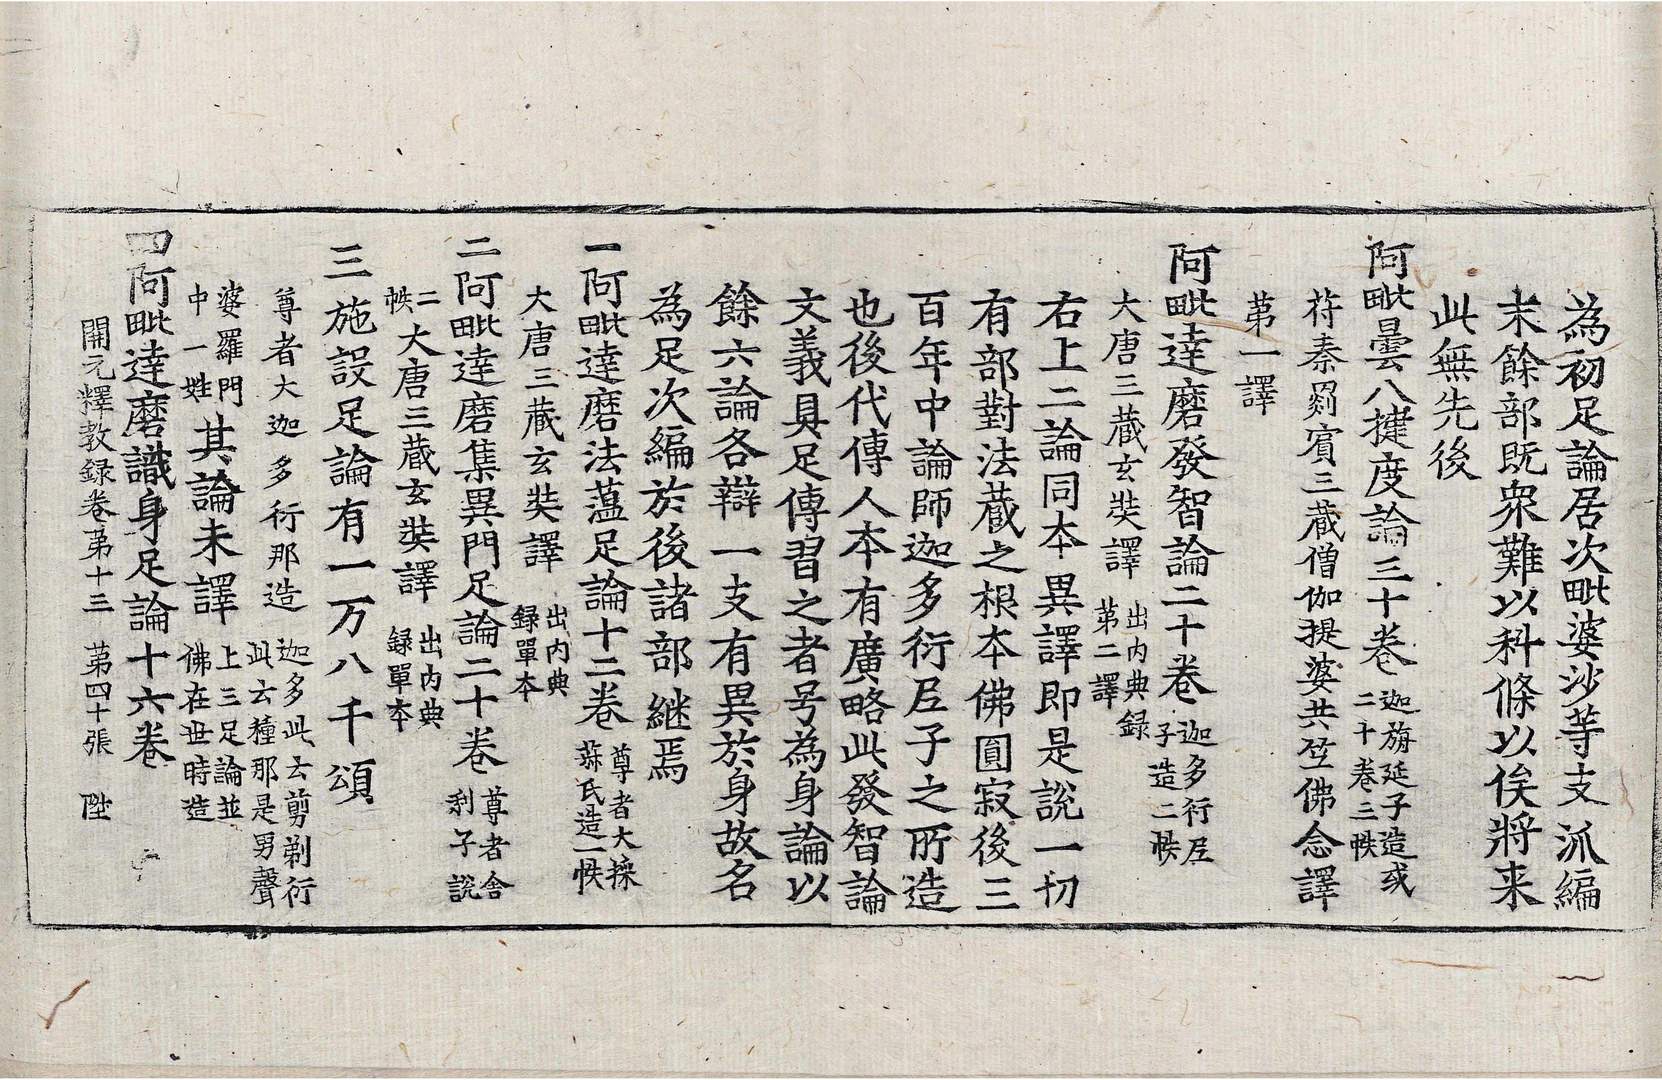 為初足論居次毗婆沙等支派編
末餘部既衆難以科條以俟將来
此無先後
阿毗曇八揵度論三十卷 迦旃延子造或二十卷三帙
苻秦罽賓三藏僧伽提婆共竺佛念譯
第一譯
阿毗達磨發智論二十卷 迦多衍尼子造二帙
大唐三藏玄奘譯 出內典録第二譯
右上二論同本異譯即是說一切
有部對法藏之根本佛圓寂後三
百年中論師迦多衍尼子之所造
也後代傳人本有廣略此發智論
文義具足傳習之者号為身論以
餘六論各辯一支有異於身故名
為足次編於後諸部継焉
一阿毗達磨法蘊足論十二卷 尊者大採菽氏造一帙
大唐三藏玄奘譯 出內典録單本
二阿毗達磨集異門足論二十卷 尊者舍利子說
二帙大唐三藏玄奘譯 出內典録單本
三施設足論有一万八千頌
尊者大迦多衍那造 迦多此云剪剃衍此云種那是男聲
婆羅門中一姓其論未譯 上三足論並佛在世時造
四阿毗達磨識身足論十六卷
開元釋教録卷第十三 第四十張 陞